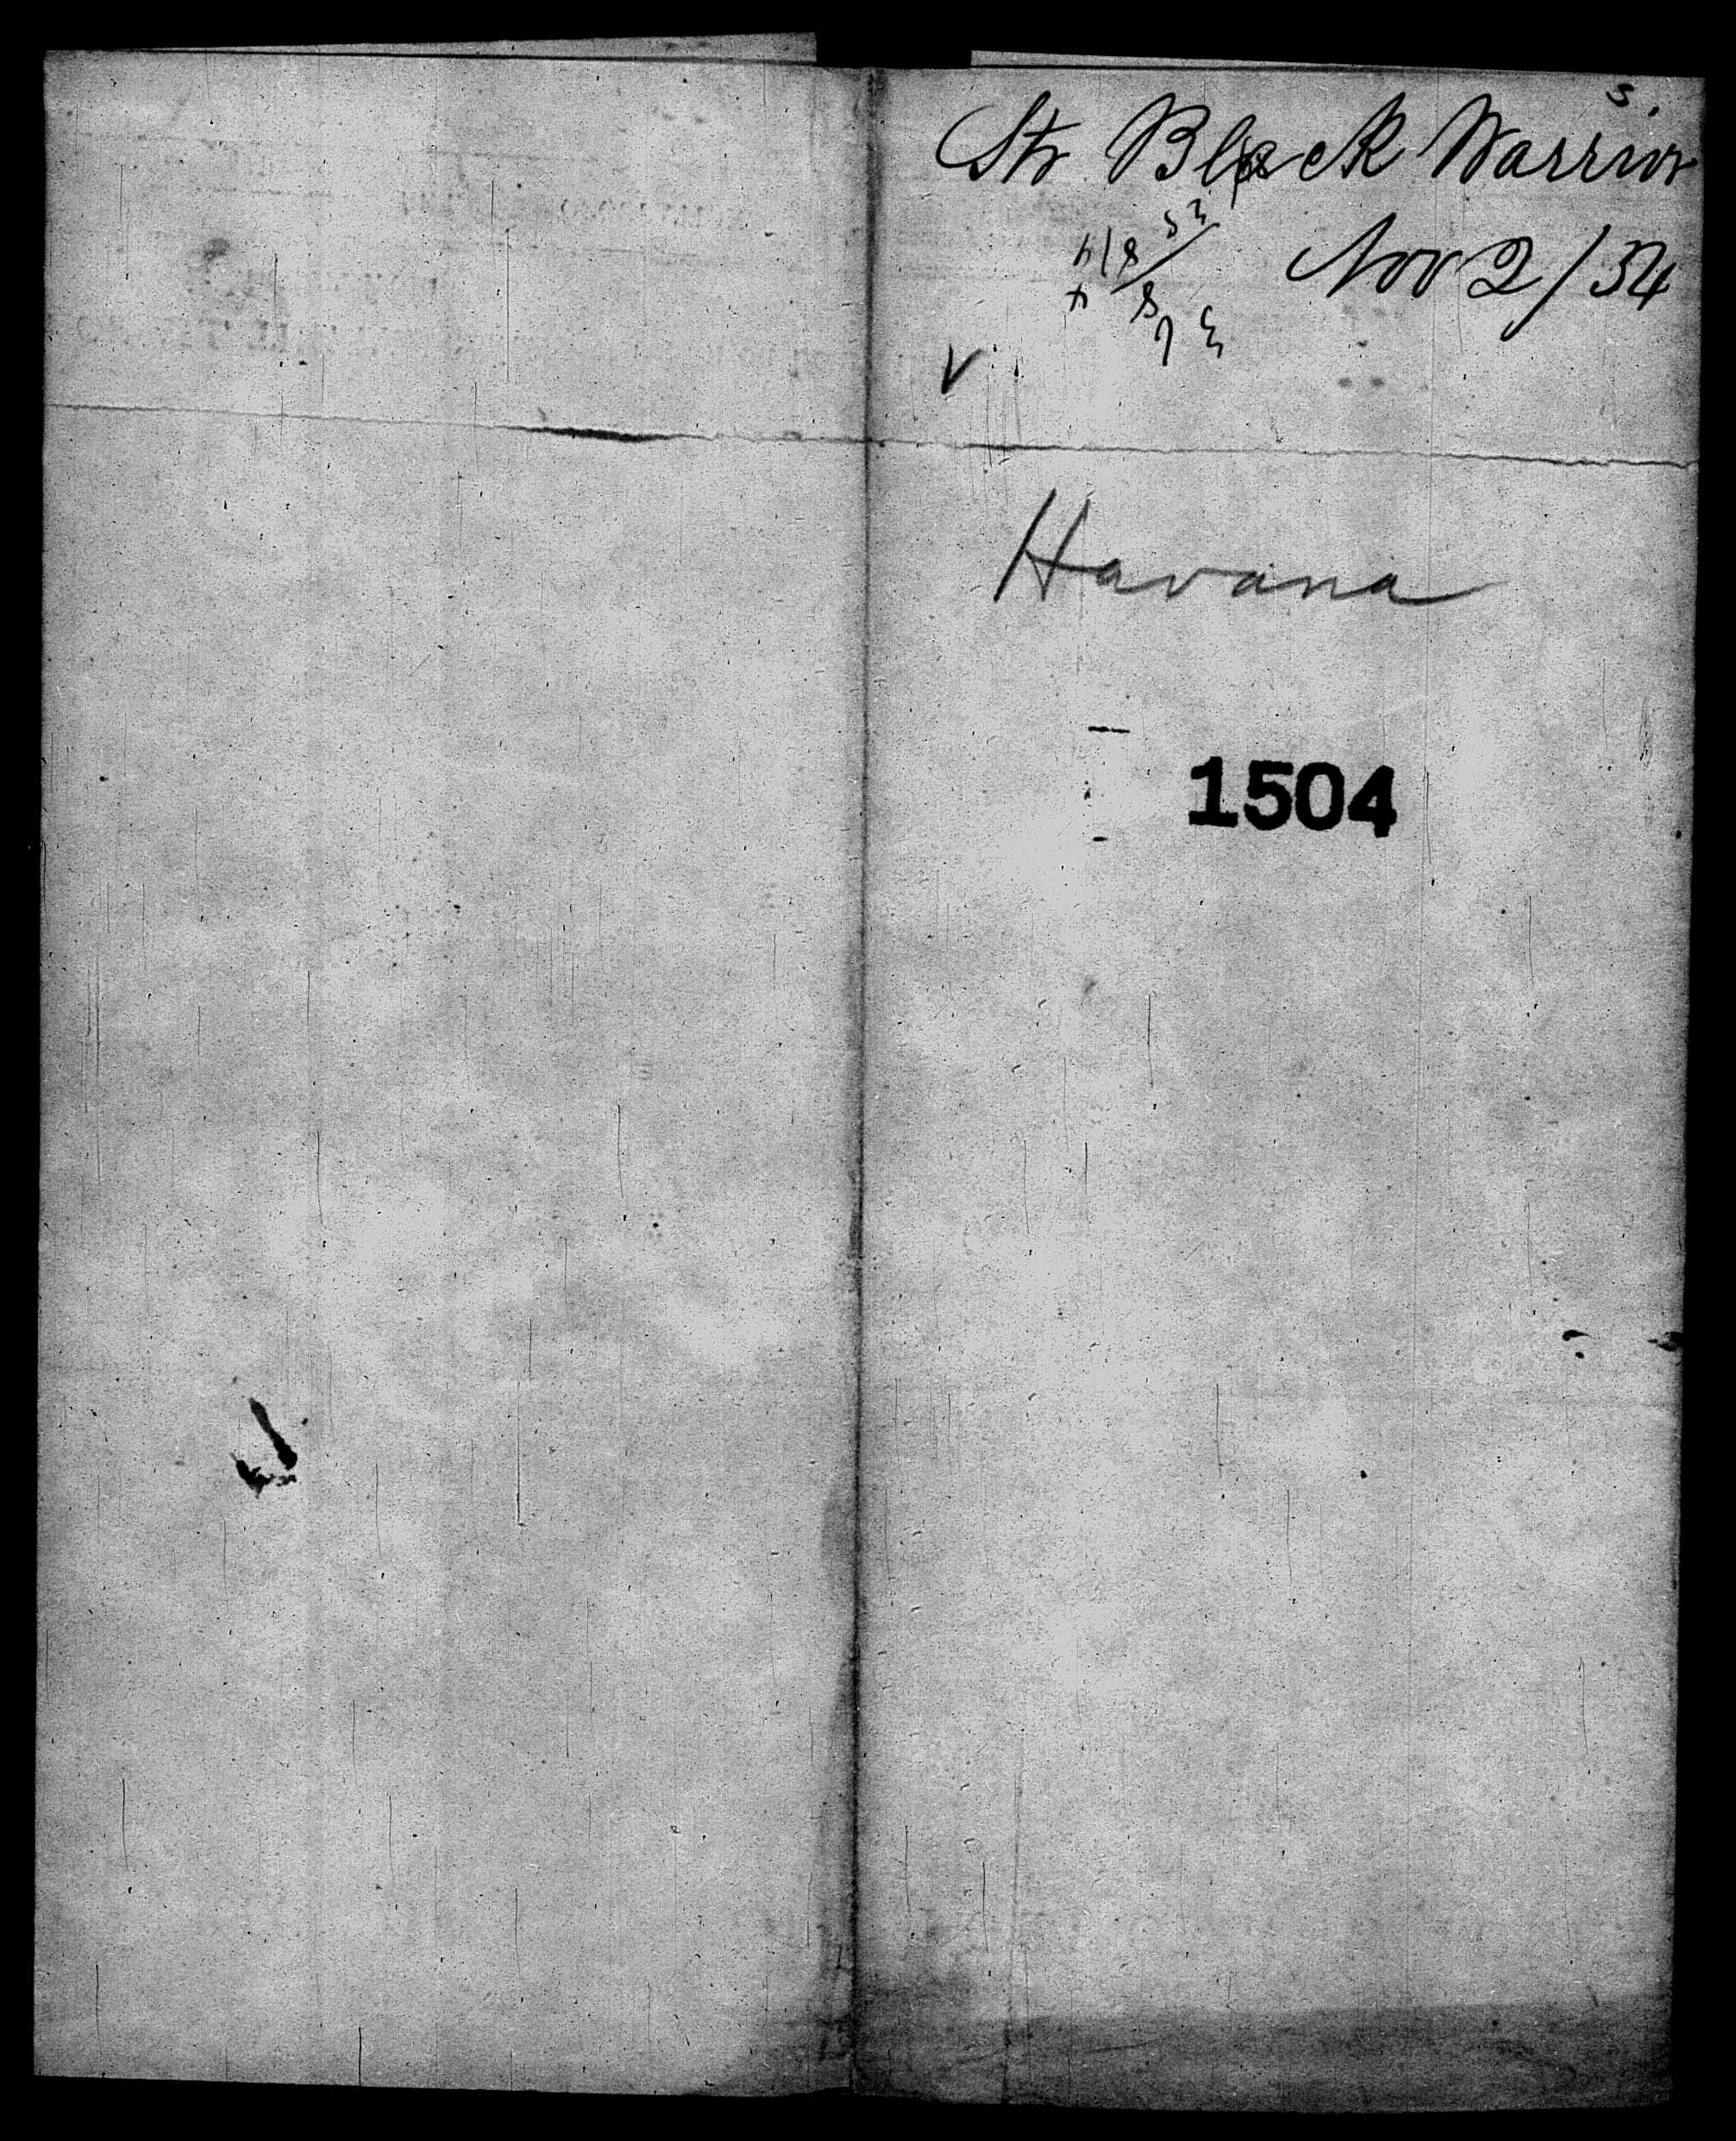 s.
Str Black Warrior
Nov 2/54
Havana
1504